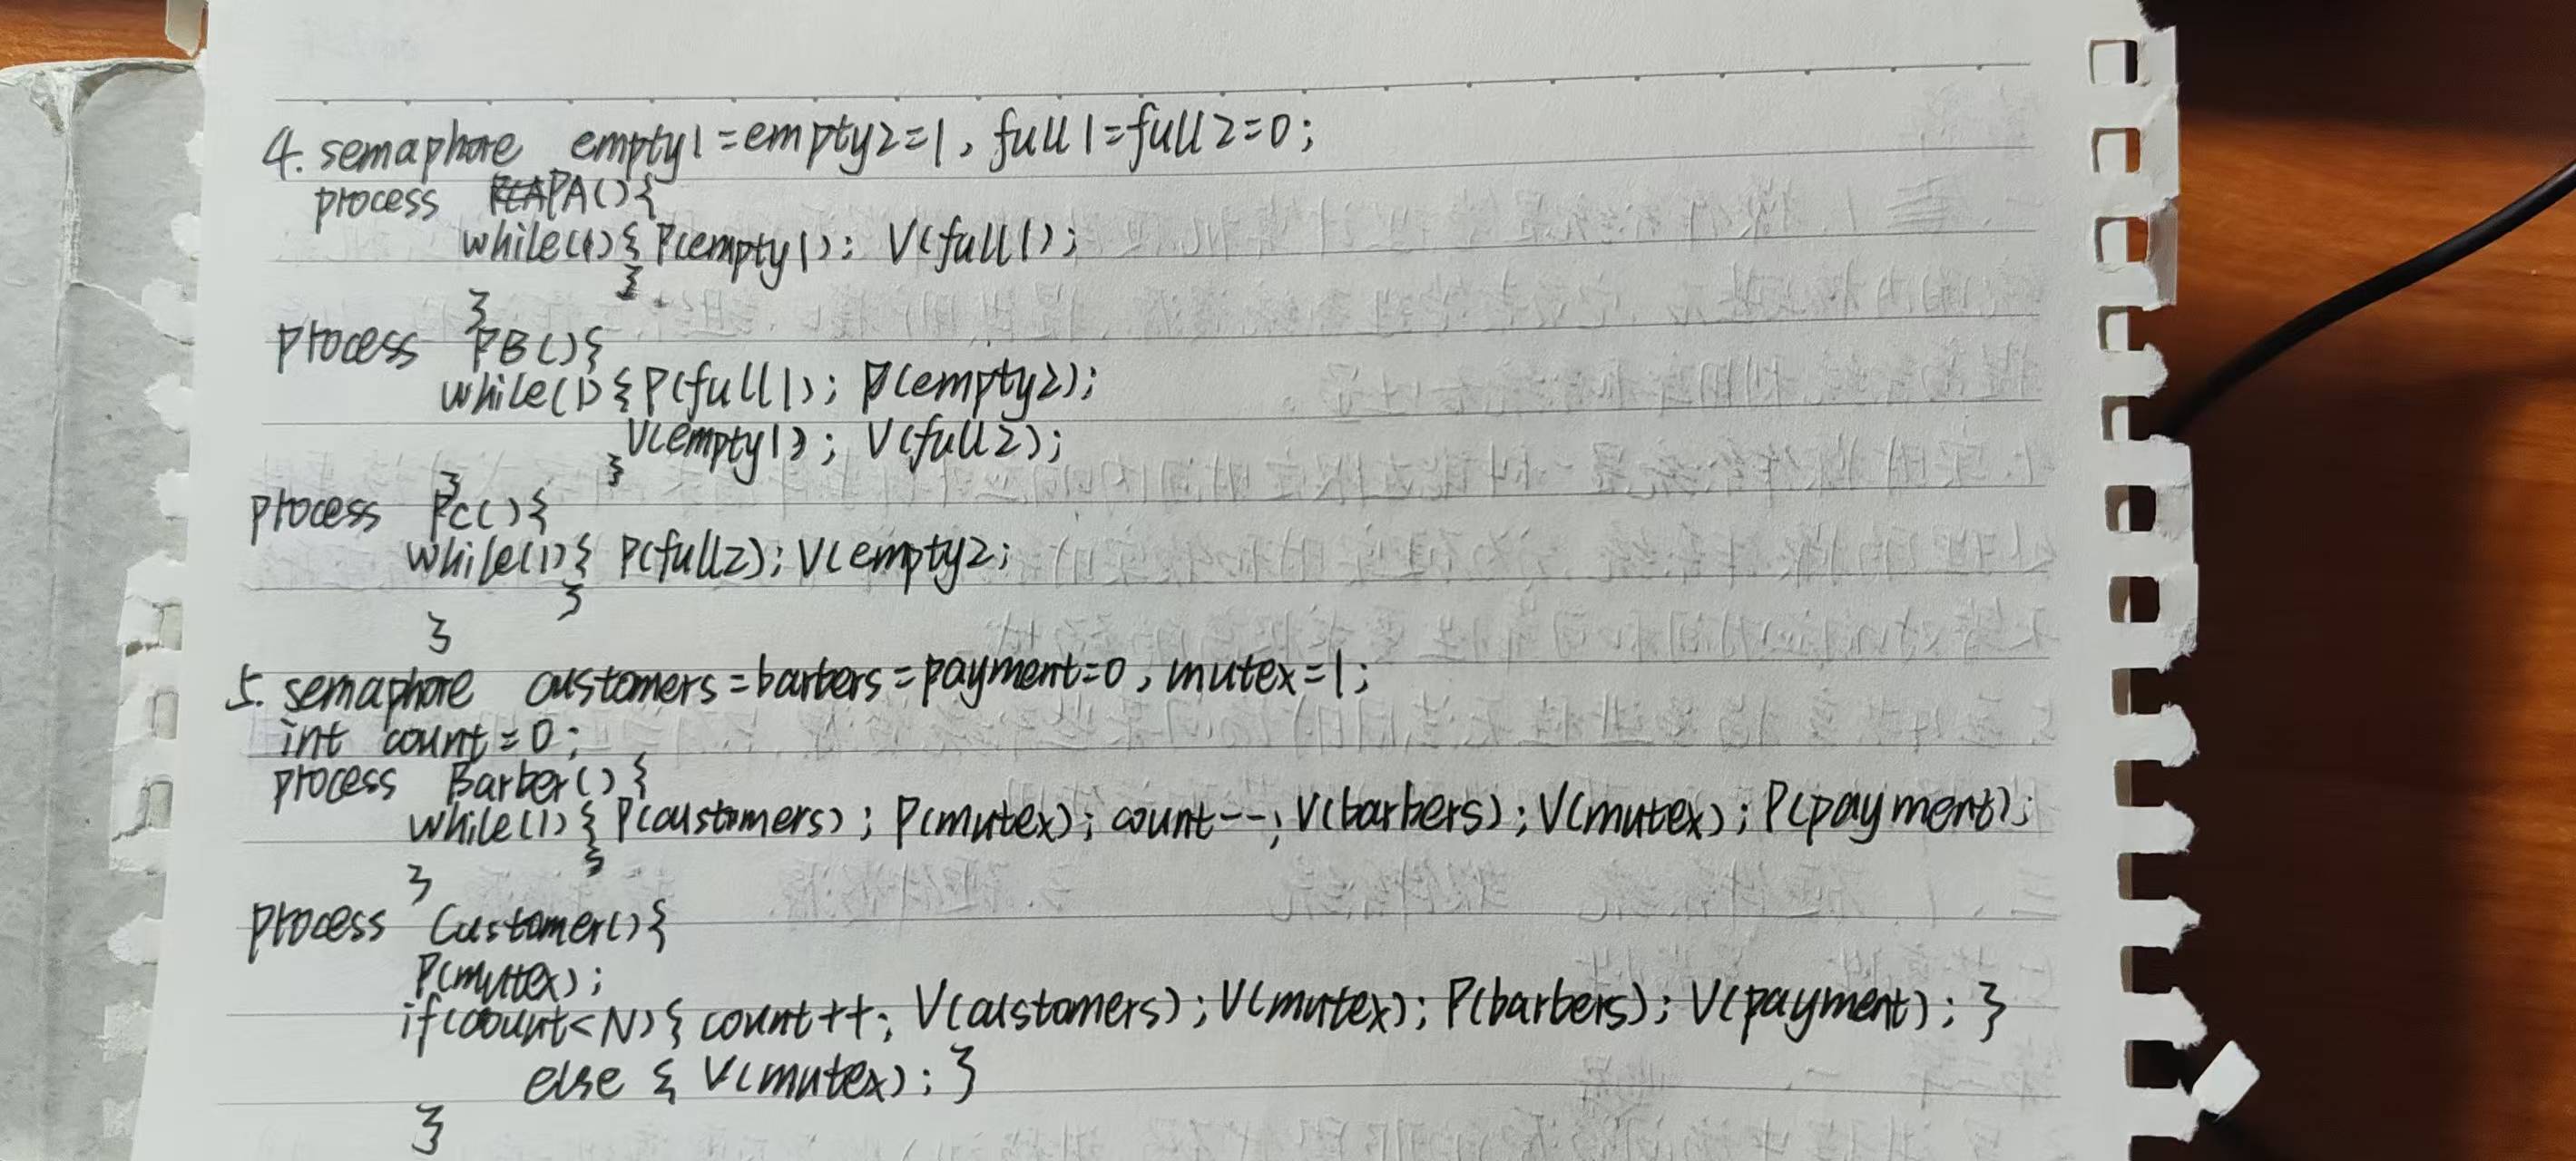 4. semaphore empty1=empty2=1, full1=full2=0;
process PA(){
while(1){ P(empty1); V(full1);
}
}
process PB(){
while(1){P(full1); P(empty2);
V(empty1); V(full2);
}
}
process PC(){
while(1){ P(full2); V(empty2;
}
}
5. semaphore customers=barbers=payment=0, mutex=1;
int count=0;
process Barber(){
while(1){ P(customers); P(mutex); count--; V(barbers); V(mutex); P(payment);
}
}
process Customer(){
P(mutex);
if(count<N){ count++; V(customers); V(mutex); P(barbers); V(payment); }
else { V(mutex); }
}